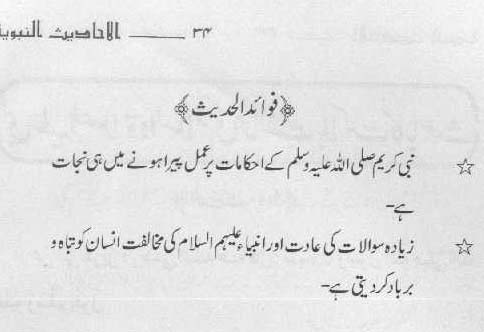 الاحادیث النبویة ـــــــــ ۳۴
﴿فوائد الحدیث﴾
☆ نبی کریم صلی اللہ علیہ وسلم کے احکامات پر عمل پیرا ہونے میں ہی نجات
ہے۔
☆ زیادہ سوالات کی عادت اور انبیاء علیہم السلام کی مخالفت انسان کو تباہ و
برباد کر دیتی ہے۔